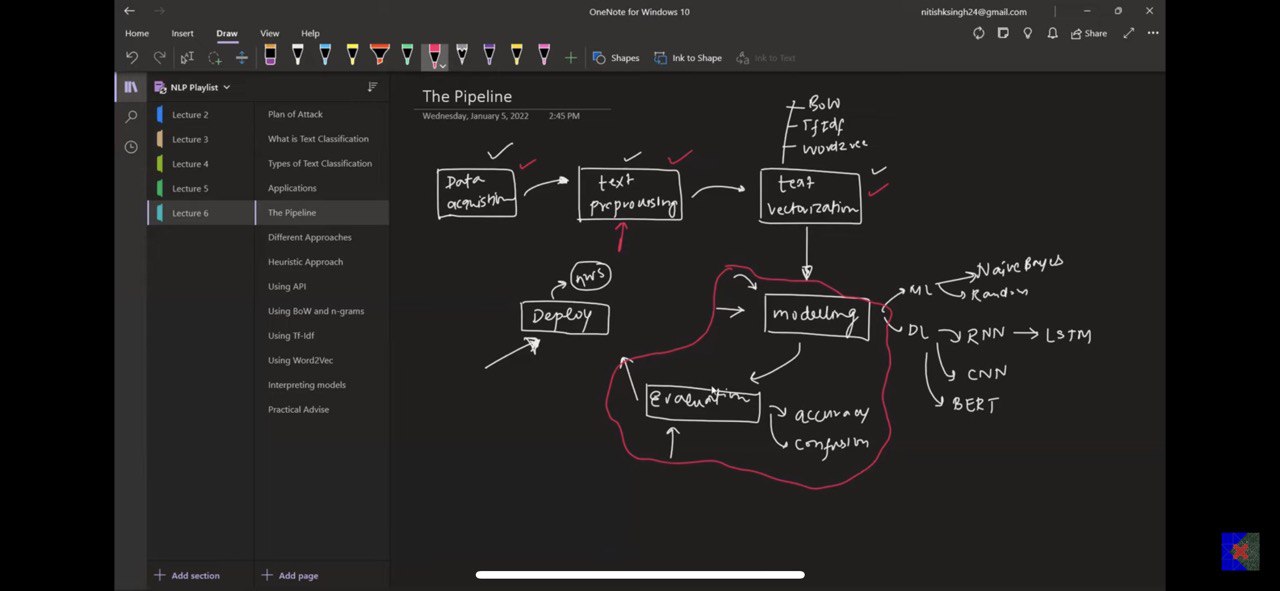 OneNote for Windows 10
nitishksingh24@gmail.com
Home
Insert
Draw
View
Help
Share
Shapes
Ink to Shape
Ink to Text
NLP Playlist
Lecture 2
Lecture 3
Lecture 4
Lecture 5
Lecture 6
Add section
Plan of Attack
What is Text Classification
Types of Text Classification
Applications
The Pipeline
Different Approaches
Heuristic Approach
Using API
Using BoW and n-grams
Using Tf-Idf
Using Word2Vec
Interpreting models
Practical Advise
Add page
The Pipeline
Wednesday, January 5, 2022
2:45 PM
BoW
TfIdf
Word2vec
Data
acquisition
text
preprocessing
text
vectorization
aws
Deploy
modelling
ML
Naive Bayes
Random
DL
RNN
LSTM
CNN
BERT
Evaluation
accuracy
confusion